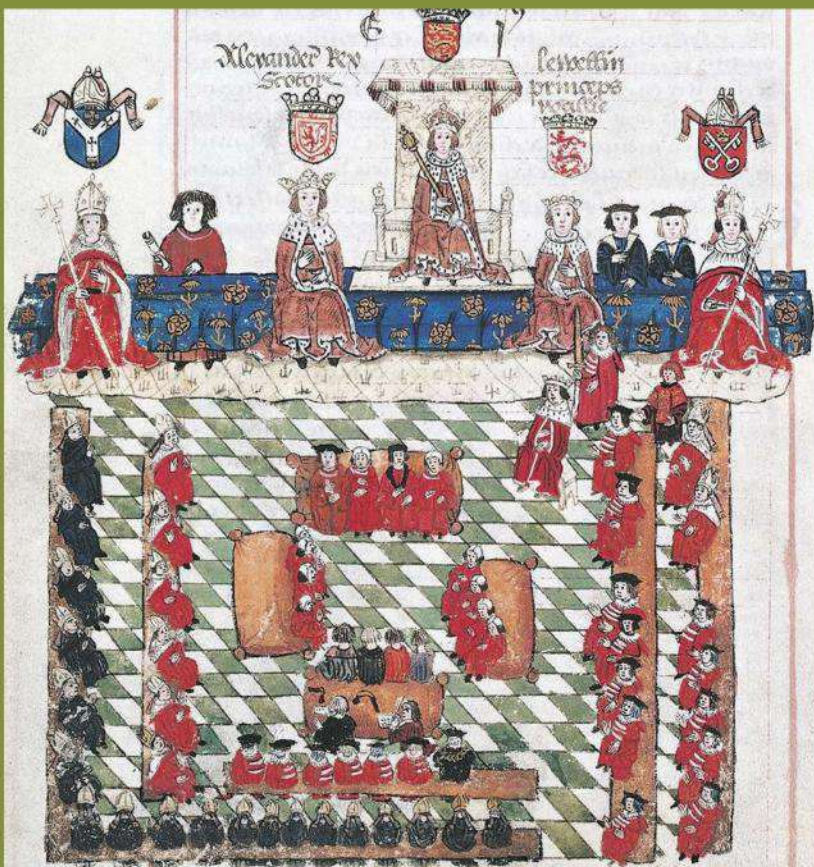 E
Alexander Rex
Scotor
Lewellin
princeps
wallie